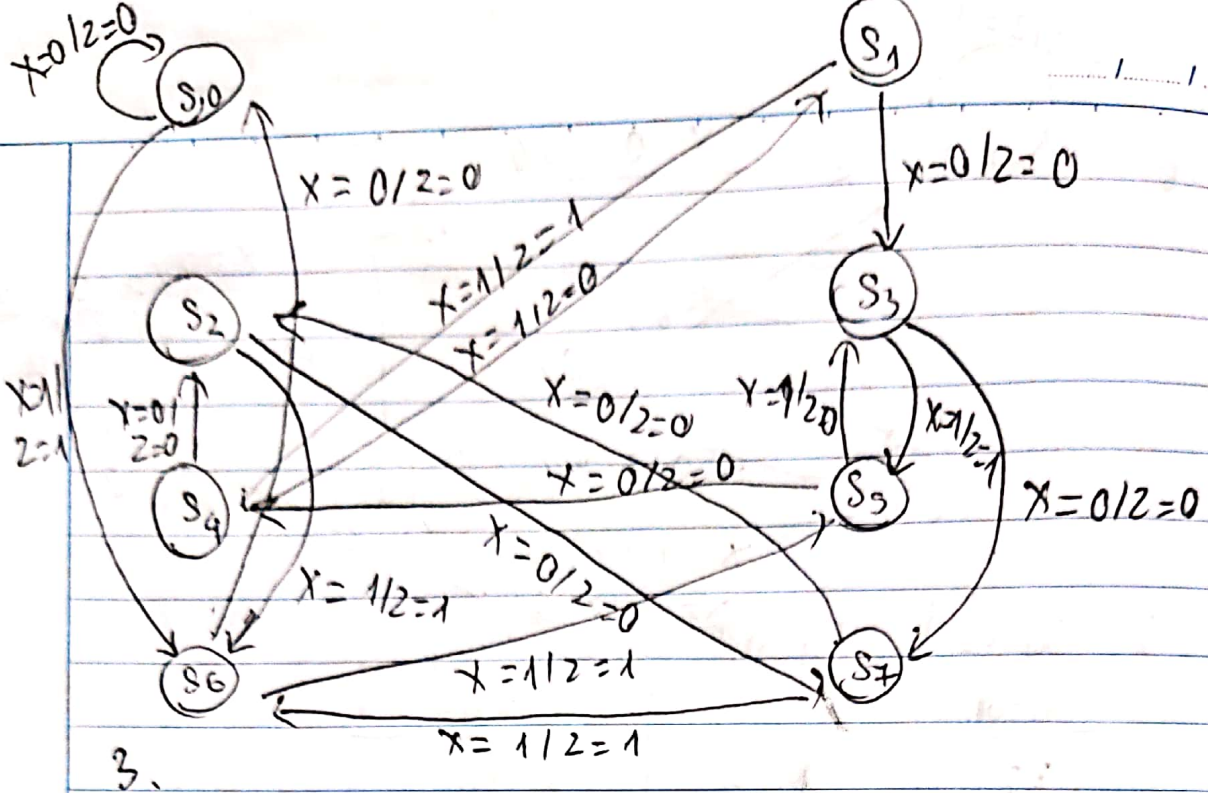 X=0/Z=0
S0
S1
X=0/Z=0
X=0/Z=0
X=1/Z=1
X=1/Z=0
S2
S3
X=1/
Z=1
X=0/
Z=0
X=0/Z=0
X=1/Z=0
X=1/Z=1
X=0/Z=0
S4
S5
X=0/Z=0
X=0/Z=0
X=1/Z=1
S6
X=1/Z=1
S7
X=1/Z=1
3.